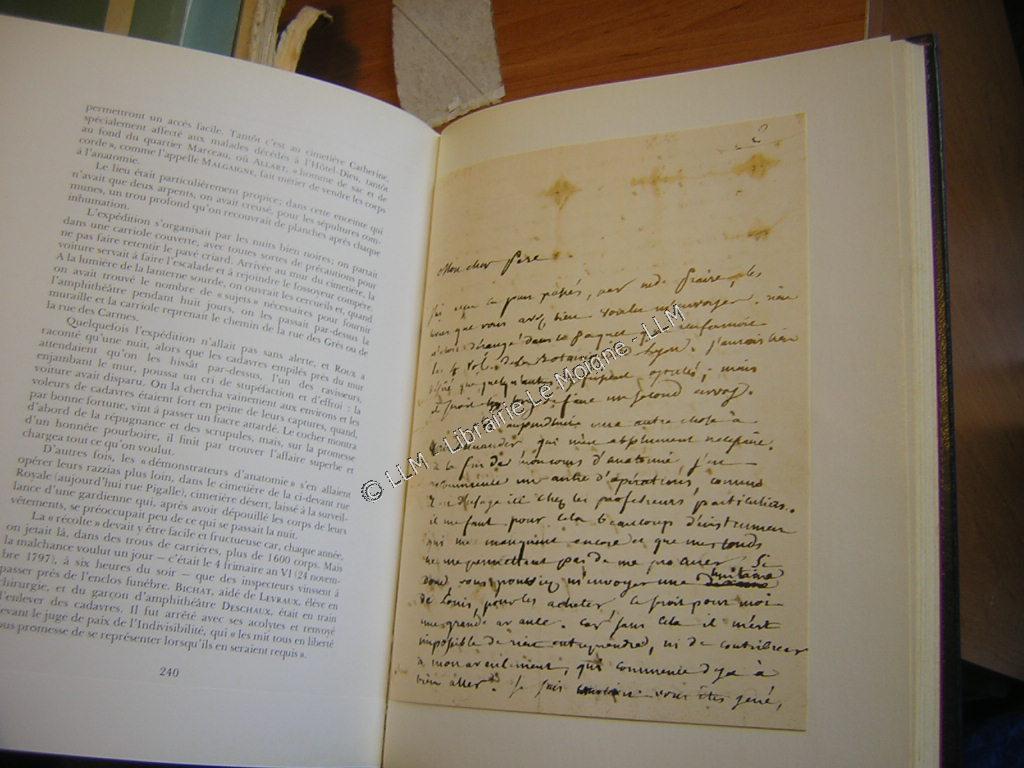 permettront un accès facile. Tantôt c'est au cimetière Catherine,
spécialement affecté aux malades décédés à l'Hôtel-Dieu, tantôt
au fond du quartier Marceau, où ALLART, « homme de sac et de
corde », comme l'appelle MALGAIGNE, fait métier de vendre les corps
à l'anatomie.
Le lieu était particulièrement propice ; dans cette enceinte qui
n'avait que deux arpents, on avait creusé, pour les sépultures com-
munes, un trou profond qu'on recouvrait de planches après chaque
inhumation.
L'expédition s'organisait par les nuits bien noires ; on partait
dans une carriole couverte, avec toutes sortes de précautions pour
ne pas faire retentir le pavé criard. Arrivée au mur du cimetière, la
voiture servait à faire l'escalade et à rejoindre le fossoyeur compère.
A la lumière de la lanterne sourde, on ouvrait les cercueils et, quand
on avait trouvé le nombre de « sujets » nécessaires pour fournir
l'amphithéâtre pendant huit jours, on les passait par-dessus la
muraille et la carriole reprenait le chemin de la rue des Grès ou de
la rue des Carmes.
Quelquefois l'expédition n'allait pas sans alerte, et ROUX a
raconté qu'une nuit, alors que les cadavres empilés près du mur
attendaient qu'on les hissât par-dessus, l'un des ravisseurs,
enjambant le mur, poussa un cri de stupéfaction et d'effroi : la
voiture avait disparu. On la chercha vainement aux environs et les
voleurs de cadavres étaient fort en peine de leurs captures, quand,
par bonne fortune, vint à passer un fiacre attardé. Le cocher montra
d'abord de la répugnance et des scrupules, mais, sur la promesse
d'un honnête pourboire, il finit par trouver l'affaire superbe et
chargea tout ce qu'on voulut.
D'autres fois, les « démonstrateurs d'anatomie » s'en allaient
opérer leurs razzias plus loin, dans le cimetière de la ci-devant rue
Royale (aujourd'hui rue Pigalle), cimetière désert, laissé à la surveil-
lance d'une gardienne qui, après avoir dépouillé les corps de leurs
vêtements, se préoccupait peu de ce qui se passait la nuit.
La « récolte » devait y être facile et fructueuse car, chaque année,
on jetait là, dans des trous de carrières, plus de 1600 corps. Mais
la malchance voulut un jour — c'était le 4 frimaire an VI (24 novem-
bre 1797), à six heures du soir — que des inspecteurs vinssent à
passer près de l'enclos funèbre. BICHAT, aidé de LEVRAUX, élève en
chirurgie, et du garçon d'amphithéâtre DESCHAUX, était en train
d'enlever des cadavres. Il fut arrêté avec ses acolytes et renvoyé
devant le juge de paix de l'Indivisibilité, qui « les mit tous en liberté
sous promesse de se représenter lorsqu'ils en seraient requis ».
240
2
Mon cher Pere
J'ai reçu par les
que vous avez bien voulu m'envoyer. rien
dans le paquet
Lyon. j'aurais bien
mais
faire un second envoy.
une autre chose à
demander qui m'est absolument necessaire.
à la fin de mon cours d'anatomie j'en
un autre d'opérations, comme
chez les professeurs particuliers.
il me faut pour cela beaucoup d'instrumens
qui me manquent encore et que mes fonds
ne me permettent pas de me procurer. Si
donc vous pouviez m'envoyer une
de Louis, pour les acheter, ce seroit pour moi
une grande avance. Car sans cela il m'est
impossible de rien entreprendre, ni de contribuer
à mon avancement, qui commence deja à
bien aller. Je sais vous êtes gené,
© LLM - Librairie Le Moigne - LLM